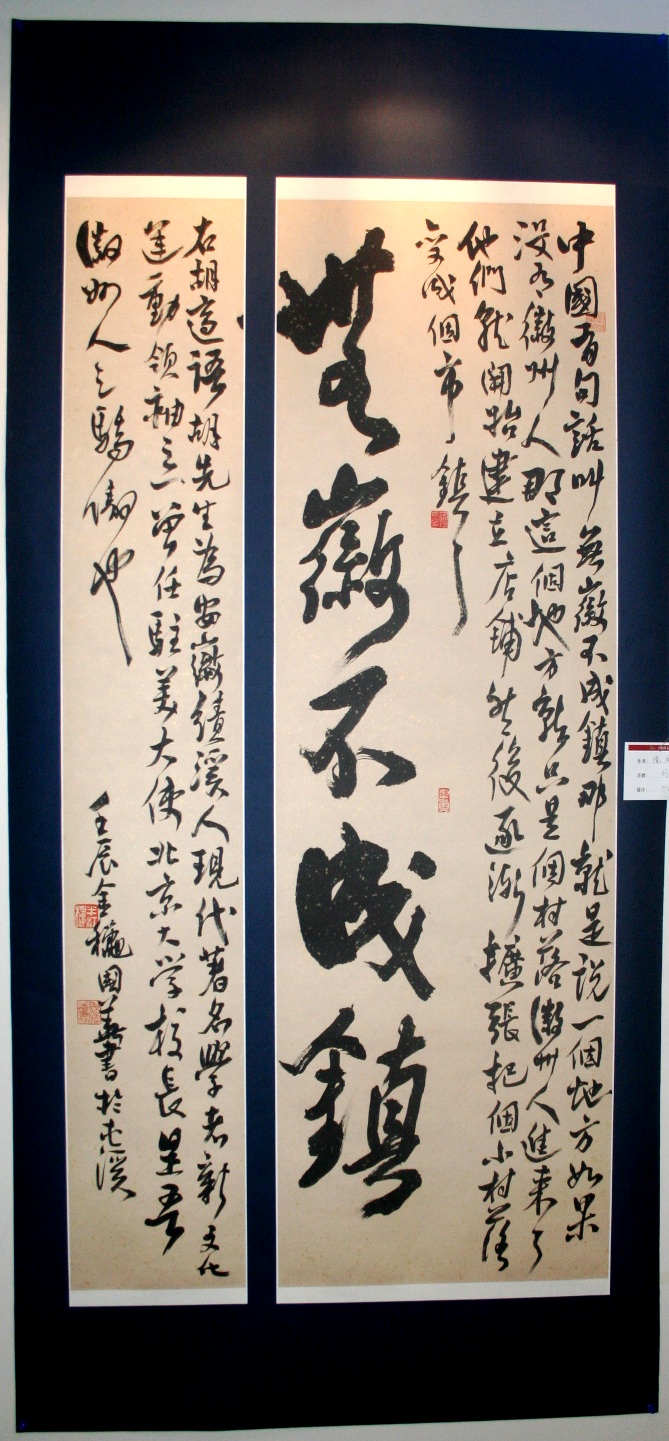 中國有句話叫無徽不成鎮那就是説一個地方如果
没有徽州人那這個地方就只是個村落徽州人進来了
他們就開始建立店鋪然後逐漸擴張把個小村落
變成個市鎮
無徽不成鎮
右胡適語胡先生為安徽績溪人現代著名學者新文化
運動領袖之一曾任駐美大使北京大学校長是吾
徽州人之驕傲也
壬辰金穐國華書於屯溪